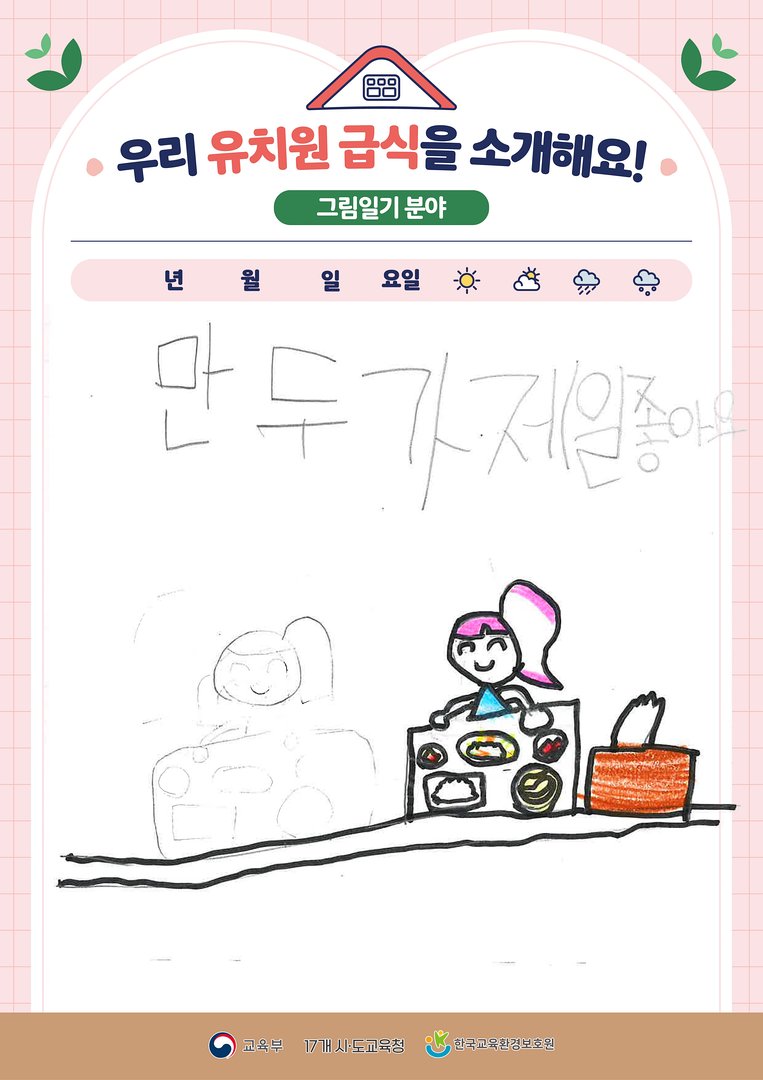 우리 유치원 급식을 소개해요!
그림일기 분야
년 월 일 요일
만두가제일좋아요
교육부 17개 시·도교육청 한국교육환경보호원